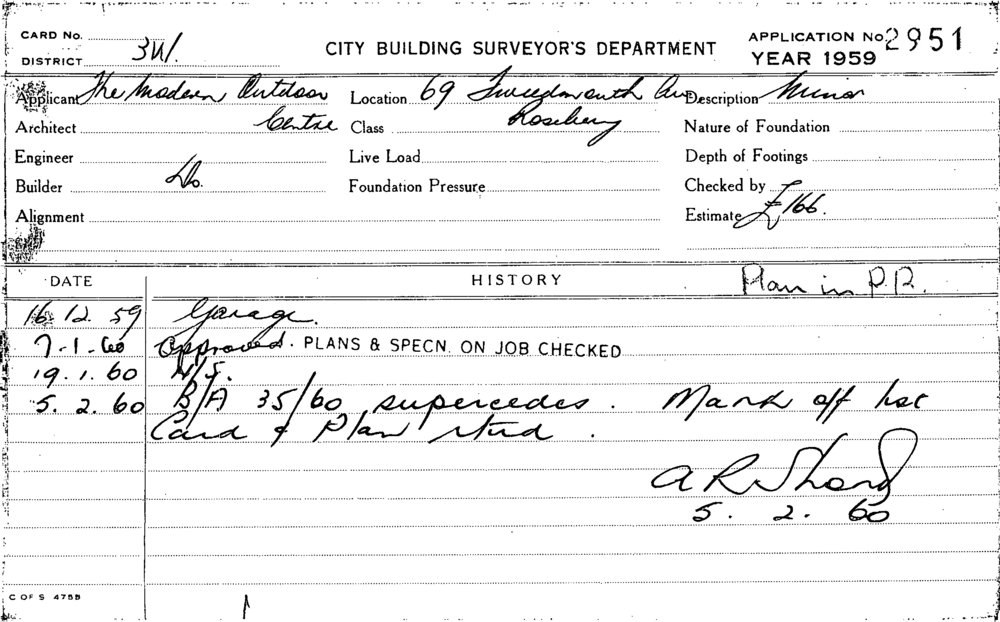 CARD No.
DISTRICT 3W.
CITY BUILDING SURVEYOR'S DEPARTMENT
APPLICATION No 2951
YEAR 1959
Applicant The Modern Outdoor Location 69 Tweedmouth Av. Description Minor
Architect Centre Class Rosebery Nature of Foundation
Engineer Live Load Depth of Footings
Builder Do. Foundation Pressure Checked by
Alignment Estimate £166.
DATE HISTORY Plan in P.R.
16.12.59 Garage.
7-1-60 Approved. PLANS & SPECN. ON JOB CHECKED
19.1.60 N/S.
5.2.60 B/A 35/60 supercedes. Mark off list
Card & Plan rtnd.
5.2.60
C OF S 475B